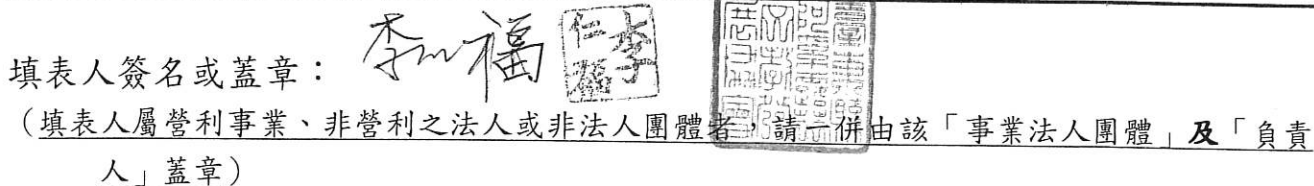 填表人簽名或蓋章：李仁福 李仁福
（填表人屬營利事業、非營利之法人或非法人團體者，請一併由該「事業法人團體」及「負責
人」蓋章）